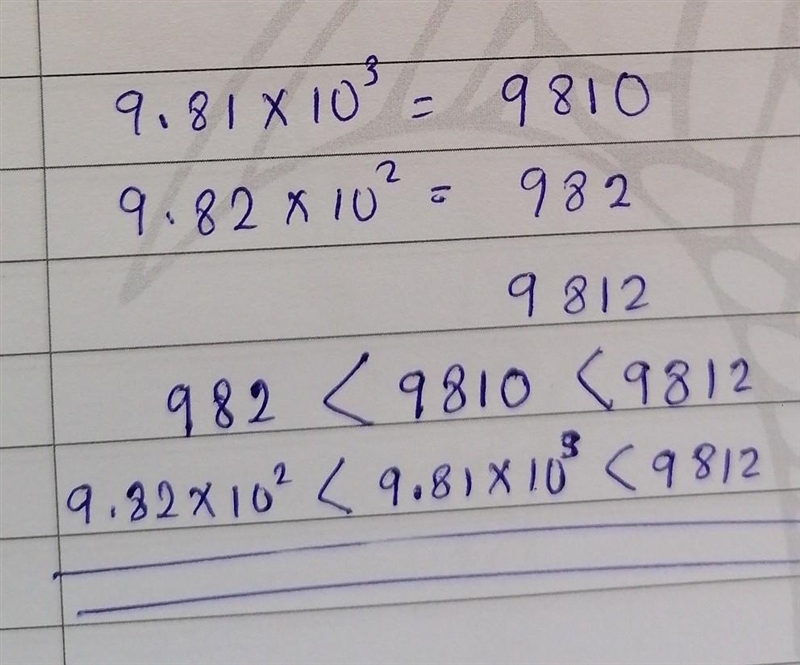 9.81 × 10³ = 9810
9.82 × 10² = 982
9812
982 < 9810 < 9812
9.82 × 10² < 9.81 × 10³ < 9812